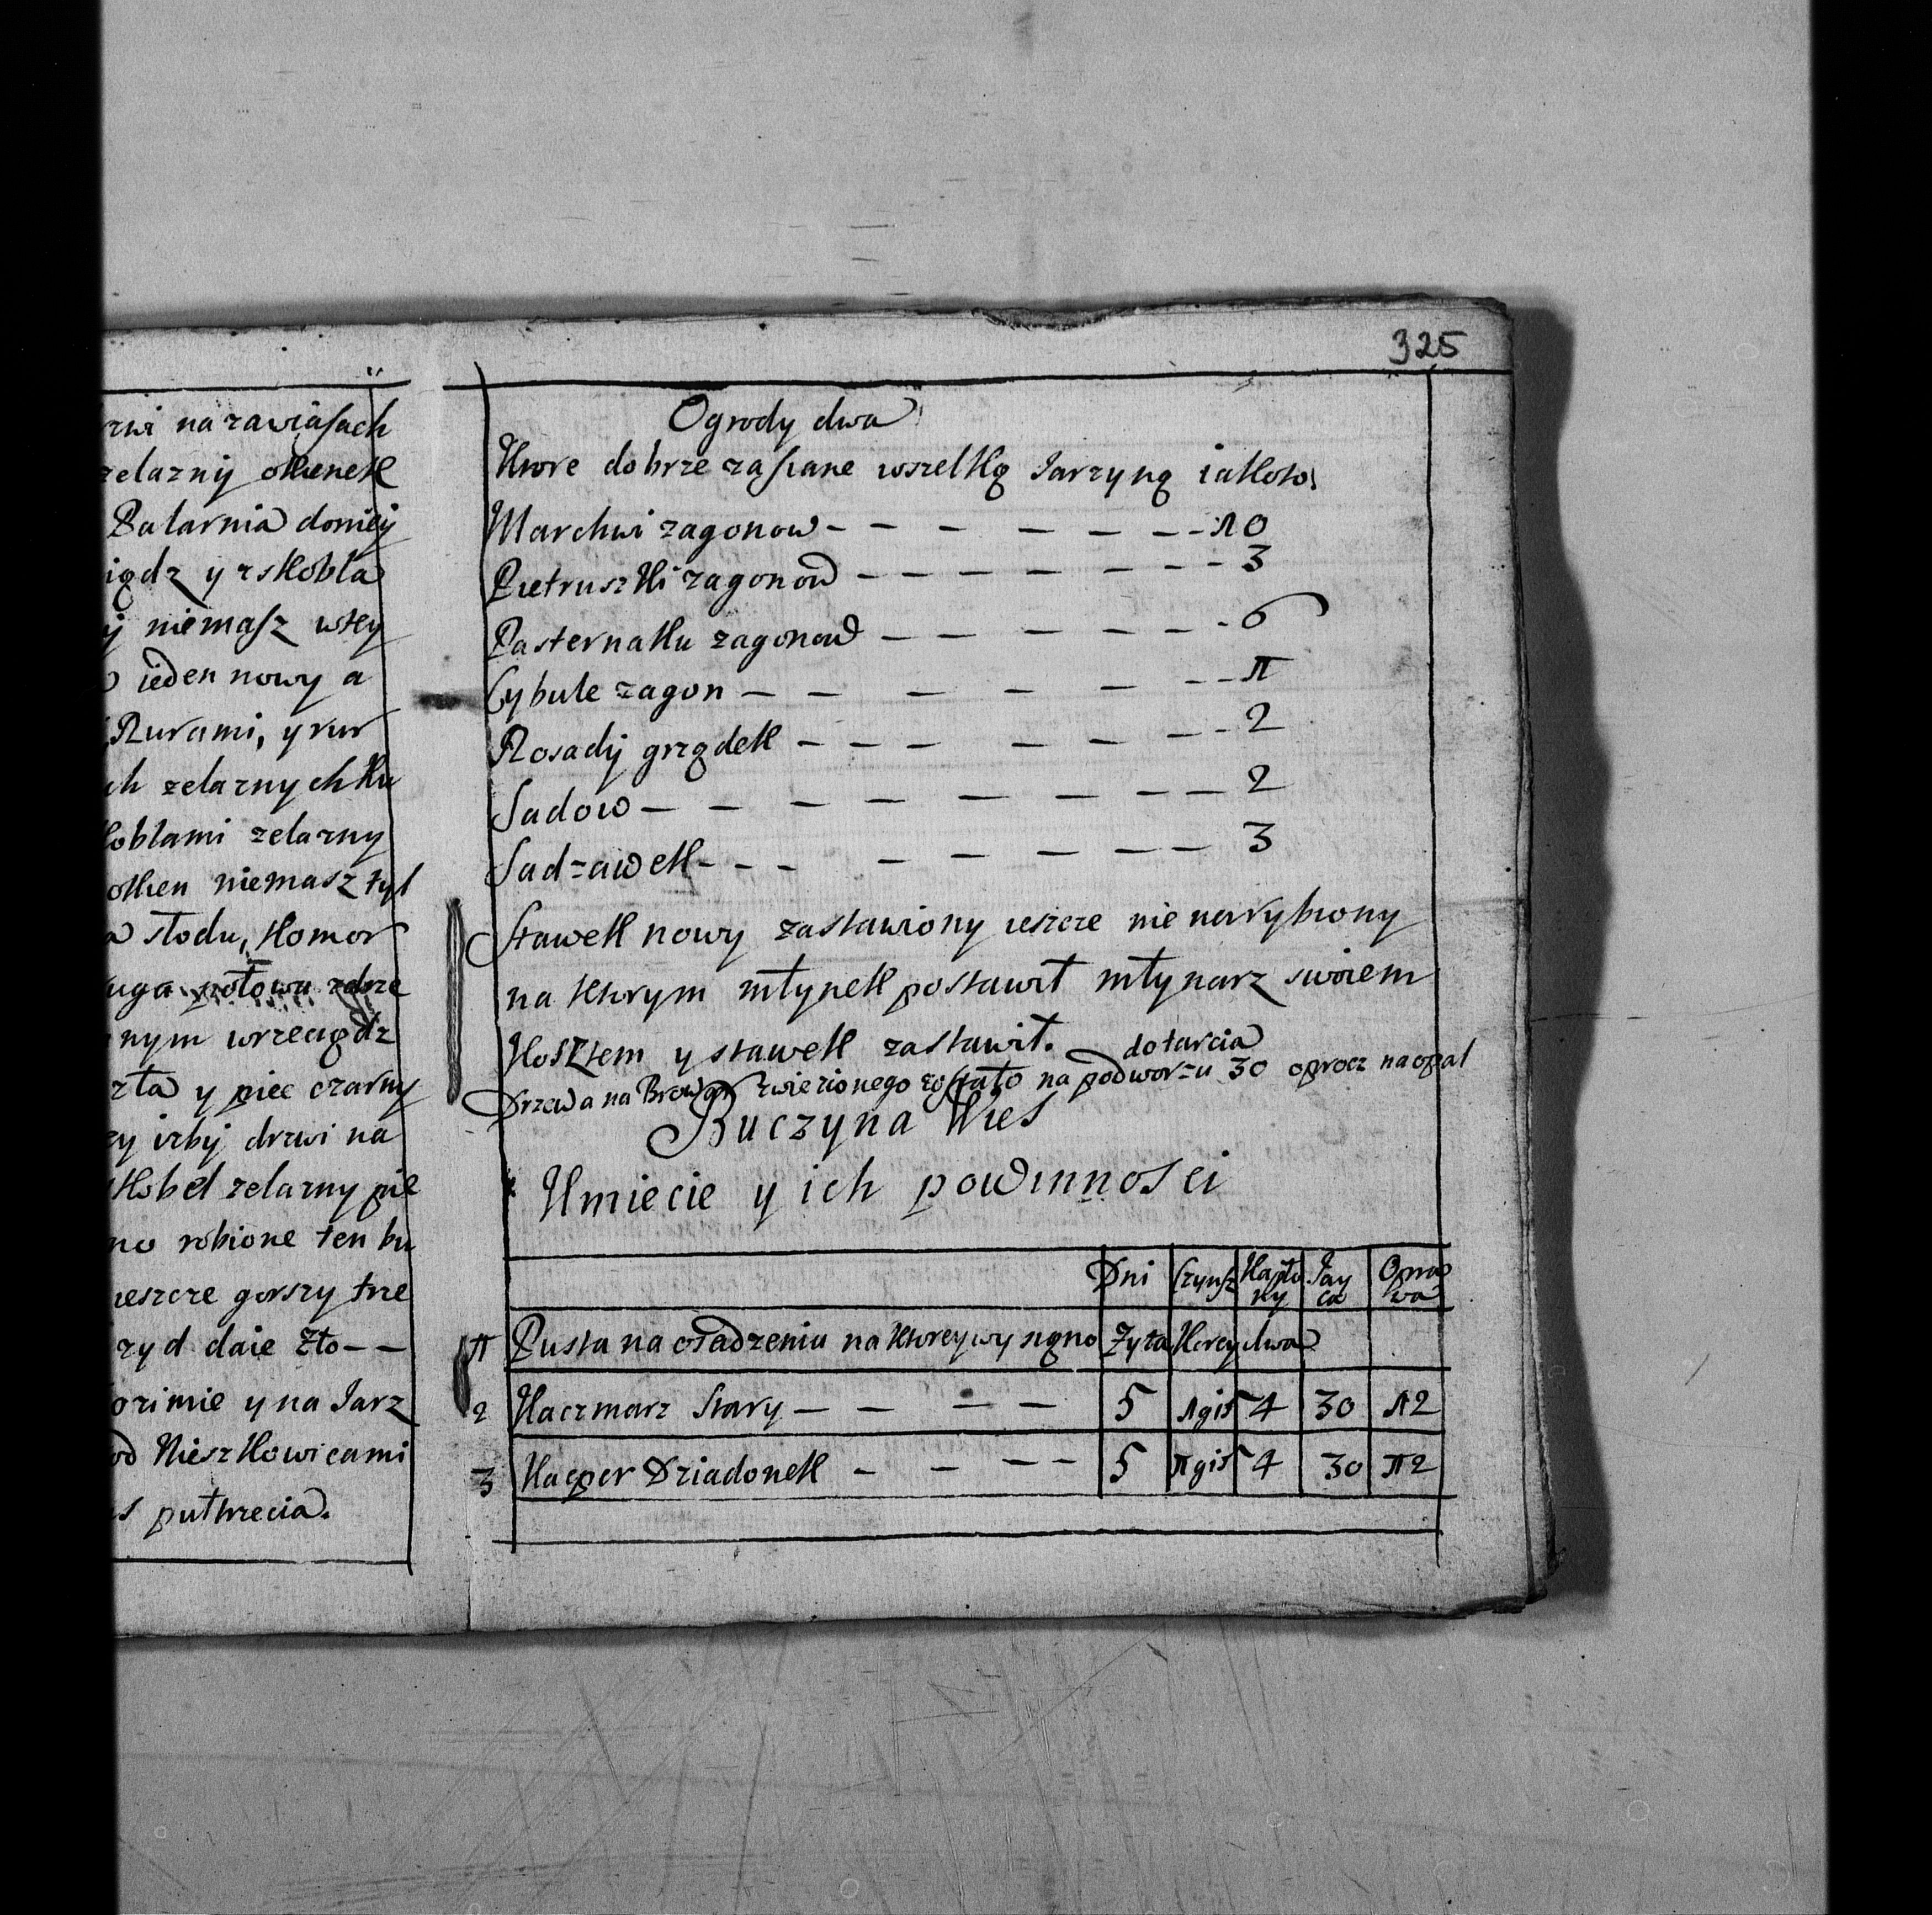 na zawiasach
zelazny okienek
Palarnia doniey
y z skobla
niemasz wtey
ieden nowy a
Rurami, y rur
zelaznych ku
zelazny
okien niemasz tyl
słodu, komor
połowa
nym wrzeciądz
y piec czarny
izby drzwi na
skobel zelazny pie
robione ten bu
ieszcze gorszy trze
daie Zło - -
ozimie y na Jarz
Nieszkowicami
putrzecia.
325
Ogrody dwa
Ktore dobrze zasiane wszelką Jarzyną iakoto
Marchwi zagonow - - - - - - - 10
Pietruszki zagonow - - - - - - - 3
Pasternaku zagonow - - - - - - 6
Cybule zagon - - - - - - - 1
Rosady grządek - - - - - - - 2
Sadow - - - - - - - - - 2
Sadzawek - - - - - - - - 3
Stawek nowy zastawiony ieszcze nie narybiony
na ktorym młynek postawił młynarz swoiem
Kosztem y stawek zastawił.
do tarcia
Drzewa na Browar zwiezionego zostało na podworzu 30 oprocz na opał
Buczyna Wies
Kmiecie y ich powinnosci
Dni Czynsz Kapłony Jayca Oprawa
1 Pusta na osadzeniu na ktorey wysiano Zyta Korcy dwa
2 Kaczmarz Stary - - - - 5 1 gis 4 30 12
3 Kacper Dziadonek - - - - 5 1 gis 4 30 12